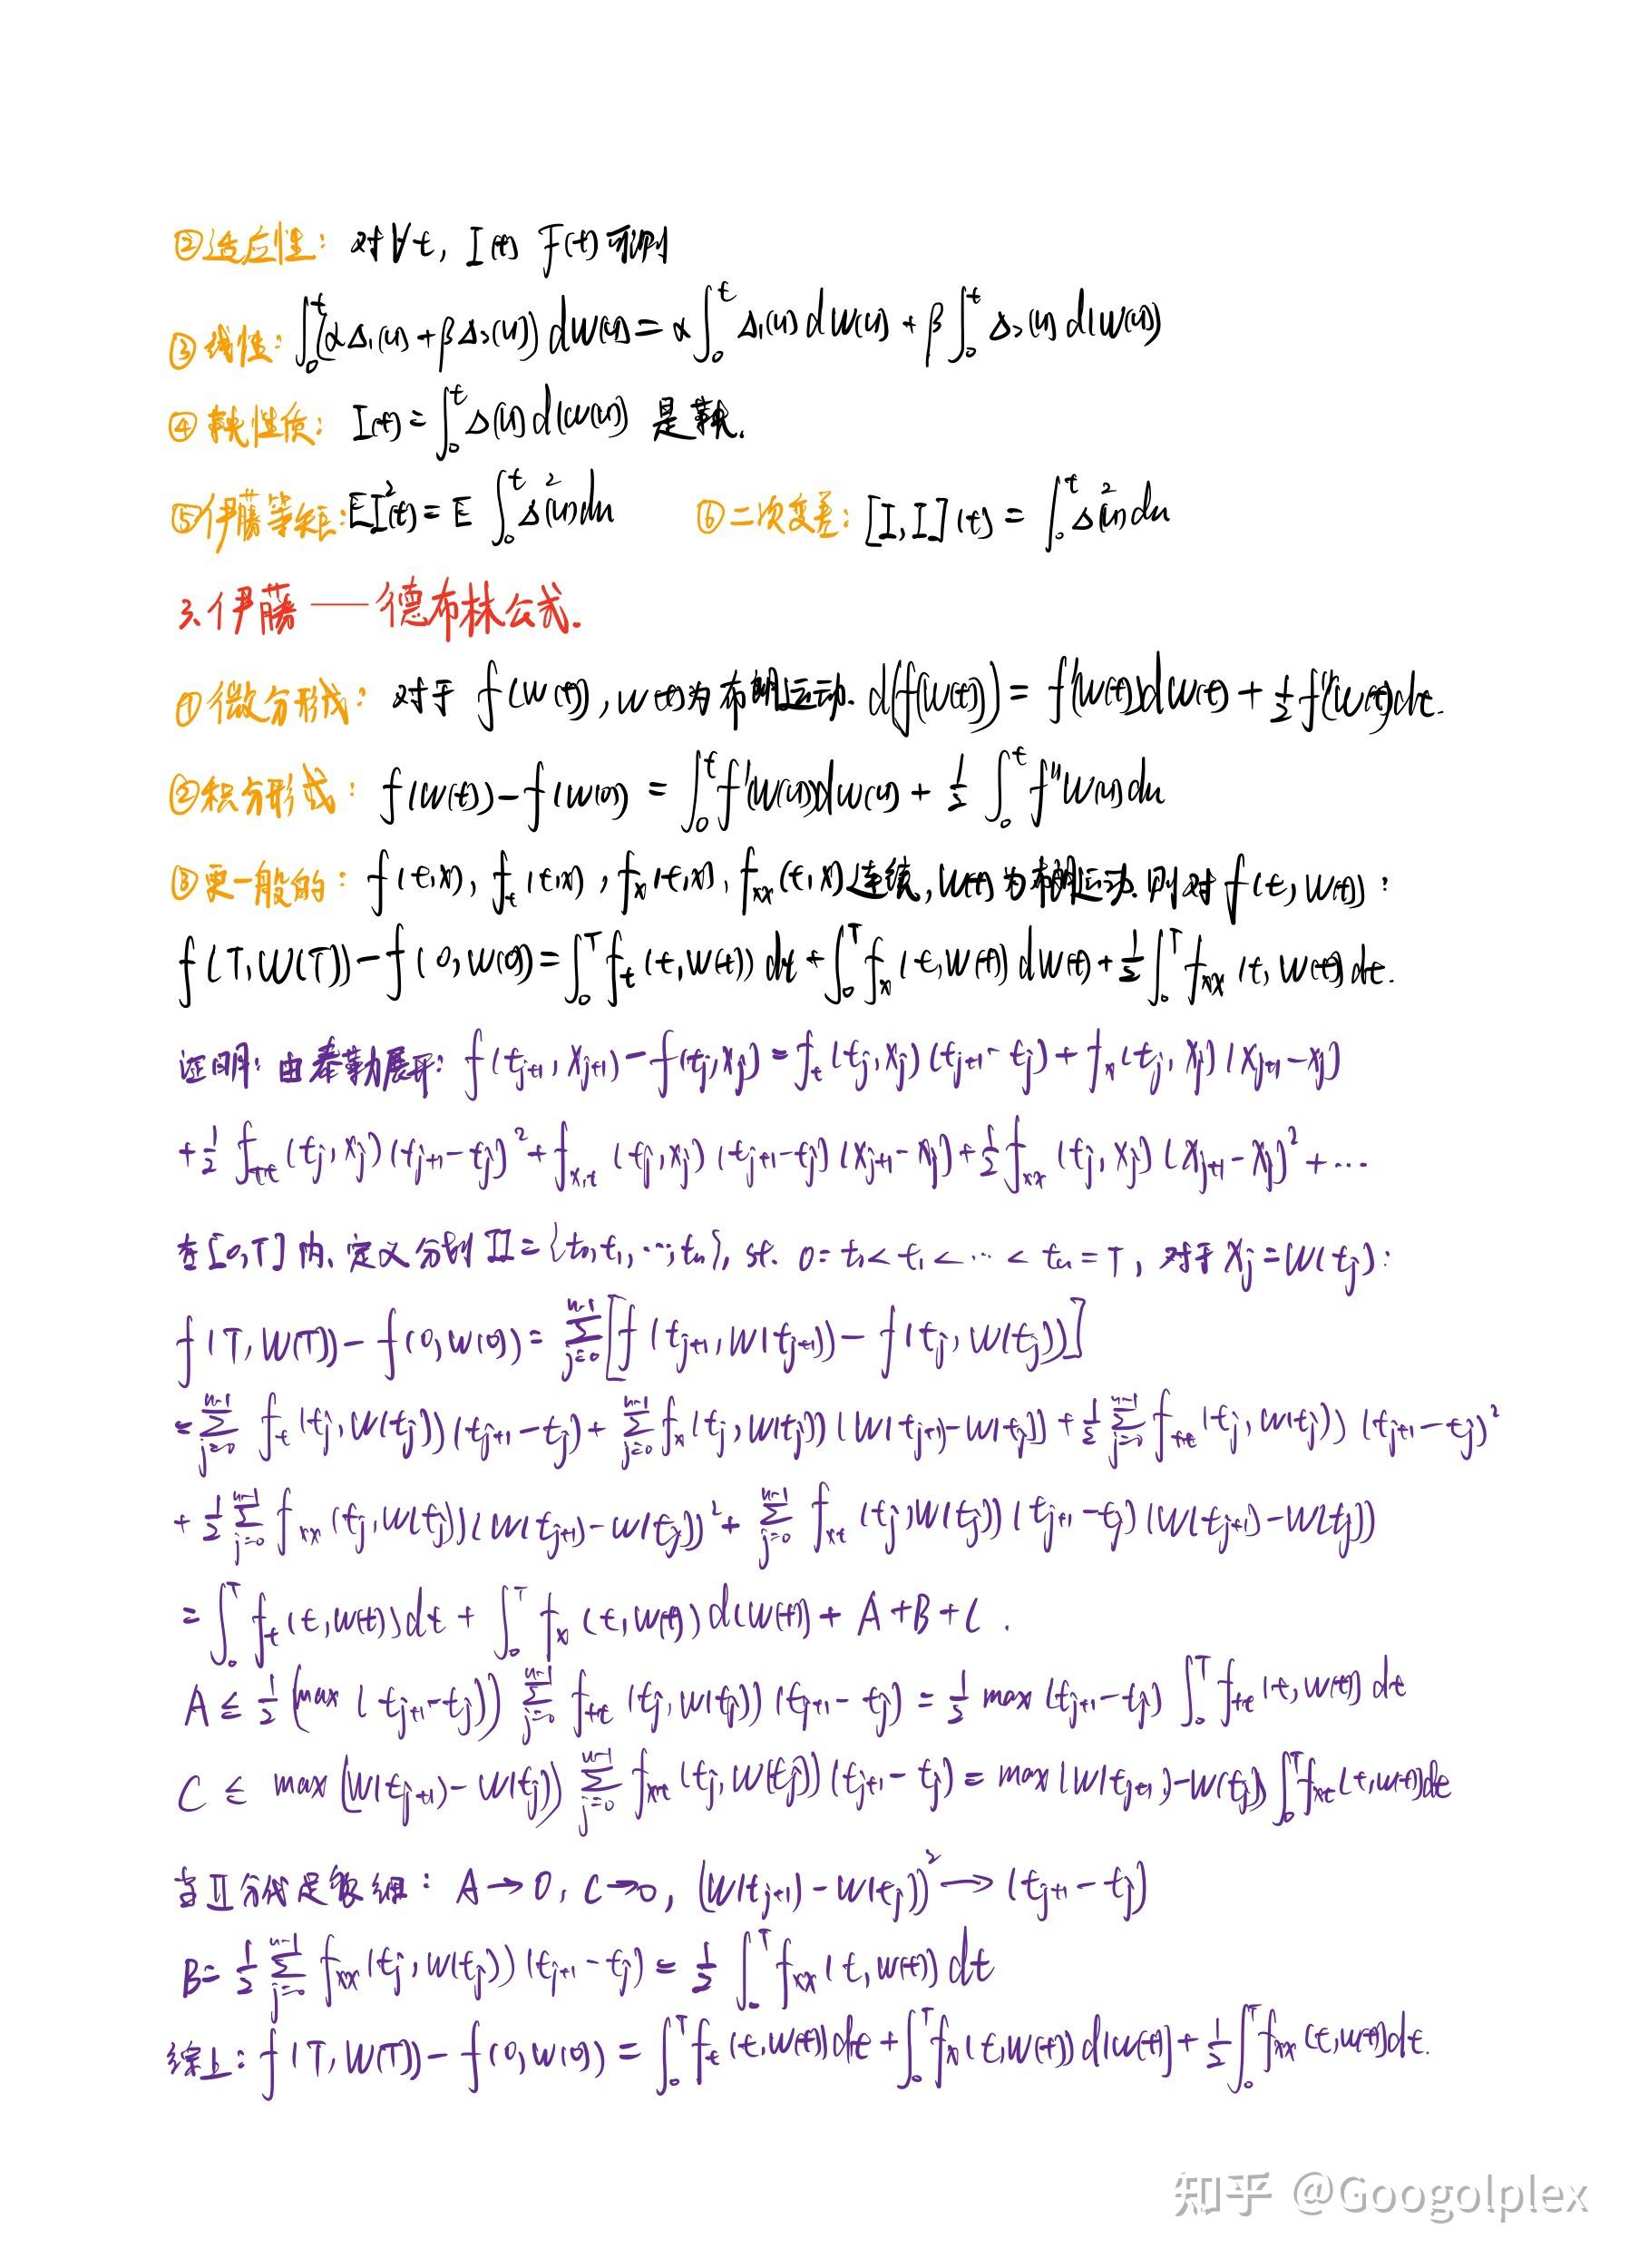 ②适应性: 对∀t, I(t) F(t)可测
③线性: ∫₀ᵗ(αΔ₁(u)+βΔ₂(u))dW(u)=α∫₀ᵗΔ₁(u)dW(u)+β∫₀ᵗΔ₂(u)dW(u)
④鞅性质: I(t)=∫₀ᵗΔ(u)dW(u) 是鞅.
⑤伊藤等矩: EI²(t)=E∫₀ᵗΔ²(u)du ⑥二次变差: [I,I](t)=∫₀ᵗΔ²(u)du
3、伊藤——德布林公式.
①微分形式: 对于 f(W(t)), W(t)为布朗运动. d(f(W(t)))=f'(W(t))dW(t)+½f''(W(t))dt.
②积分形式: f(W(t))-f(W(0))=∫₀ᵗf'(W(u))dW(u)+½∫₀ᵗf''W(u)du
③更一般的: f(t,x), f_t(t,x), f_x(t,x), f_xx(t,x)连续, W(t)为布朗运动. 则对f(t,W(t)):
f(T,W(T))-f(0,W(0))=∫₀ᵀf_t(t,W(t))dt+∫₀ᵀf_x(t,W(t))dW(t)+½∫₀ᵀf_xx(t,W(t))dt.
证明: 由泰勒展开: f(t_{j+1},x_{j+1})-f(t_j,x_j)=f_t(t_j,x_j)(t_{j+1}-t_j)+f_x(t_j,x_j)(x_{j+1}-x_j)
+½f_tt(t_j,x_j)(t_{j+1}-t_j)²+f_{x,t}(t_j,x_j)(t_{j+1}-t_j)(x_{j+1}-x_j)+½f_xx(t_j,x_j)(x_{j+1}-x_j)²+⋯
在[0,T]内, 定义分划Π={t₀,t₁,⋯,t_n}, st. 0=t₀<t₁<⋯<t_n=T, 对于x_j=W(t_j):
f(T,W(T))-f(0,W(0))=∑_{j=0}^{n-1}[f(t_{j+1},W(t_{j+1}))-f(t_j,W(t_j))]
=∑_{j=0}^{n-1}f_t(t_j,W(t_j))(t_{j+1}-t_j)+∑_{j=0}^{n-1}f_x(t_j,W(t_j))(W(t_{j+1})-W(t_j))+½∑_{j=0}^{n-1}f_tt(t_j,W(t_j))(t_{j+1}-t_j)²
+½∑_{j=0}^{n-1}f_xx(t_j,W(t_j))(W(t_{j+1})-W(t_j))²+∑_{j=0}^{n-1}f_xt(t_j,W(t_j))(t_{j+1}-t_j)(W(t_{j+1})-W(t_j))
=∫₀ᵀf_t(t,W(t))dt+∫₀ᵀf_x(t,W(t))d(W(t))+A+B+C.
A≤½(max(t_{j+1}-t_j))∑_{j=0}^{n-1}f_tt(t_j,W(t_j))(t_{j+1}-t_j)=½max(t_{j+1}-t_j)∫₀ᵀf_tt(t,W(t))dt
C≤max(W(t_{j+1})-W(t_j))∑_{j=0}^{n-1}f_xt(t_j,W(t_j))(t_{j+1}-t_j)=max(W(t_{j+1})-W(t_j))∫₀ᵀf_xt(t,W(t))dt
当Π分化足够细: A→0, C→0, (W(t_{j+1})-W(t_j))²→(t_{j+1}-t_j)
B=½∑_{j=0}^{n-1}f_xx(t_j,W(t_j))(t_{j+1}-t_j)=½∫₀ᵀf_xx(t,W(t))dt
综上: f(T,W(T))-f(0,W(0))=∫₀ᵀf_t(t,W(t))dt+∫₀ᵀf_x(t,W(t))d(W(t))+½∫₀ᵀf_xx(t,W(t))dt.
知乎 @Googolplex